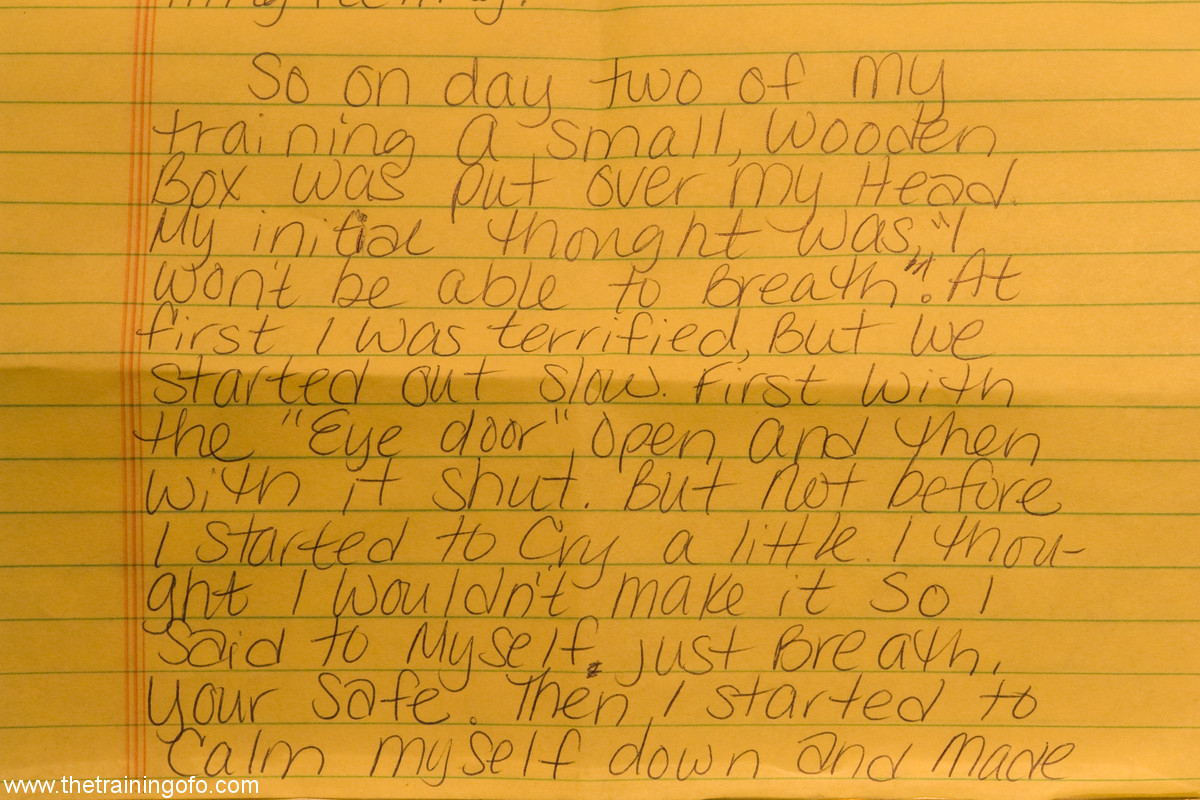 So on day two of my
training a small, wooden
Box was put over my Head.
My initial thought was, "I
won't be able to Breath". At
first I was terrified, But we
started out slow. First with
the "Eye door" open and then
with it shut. But not before
I started to Cry a little. I thou-
ght I wouldn't make it so I
said to myself, just Breath,
your safe. Then I started to
Calm myself down and made
www.thetrainingofo.com